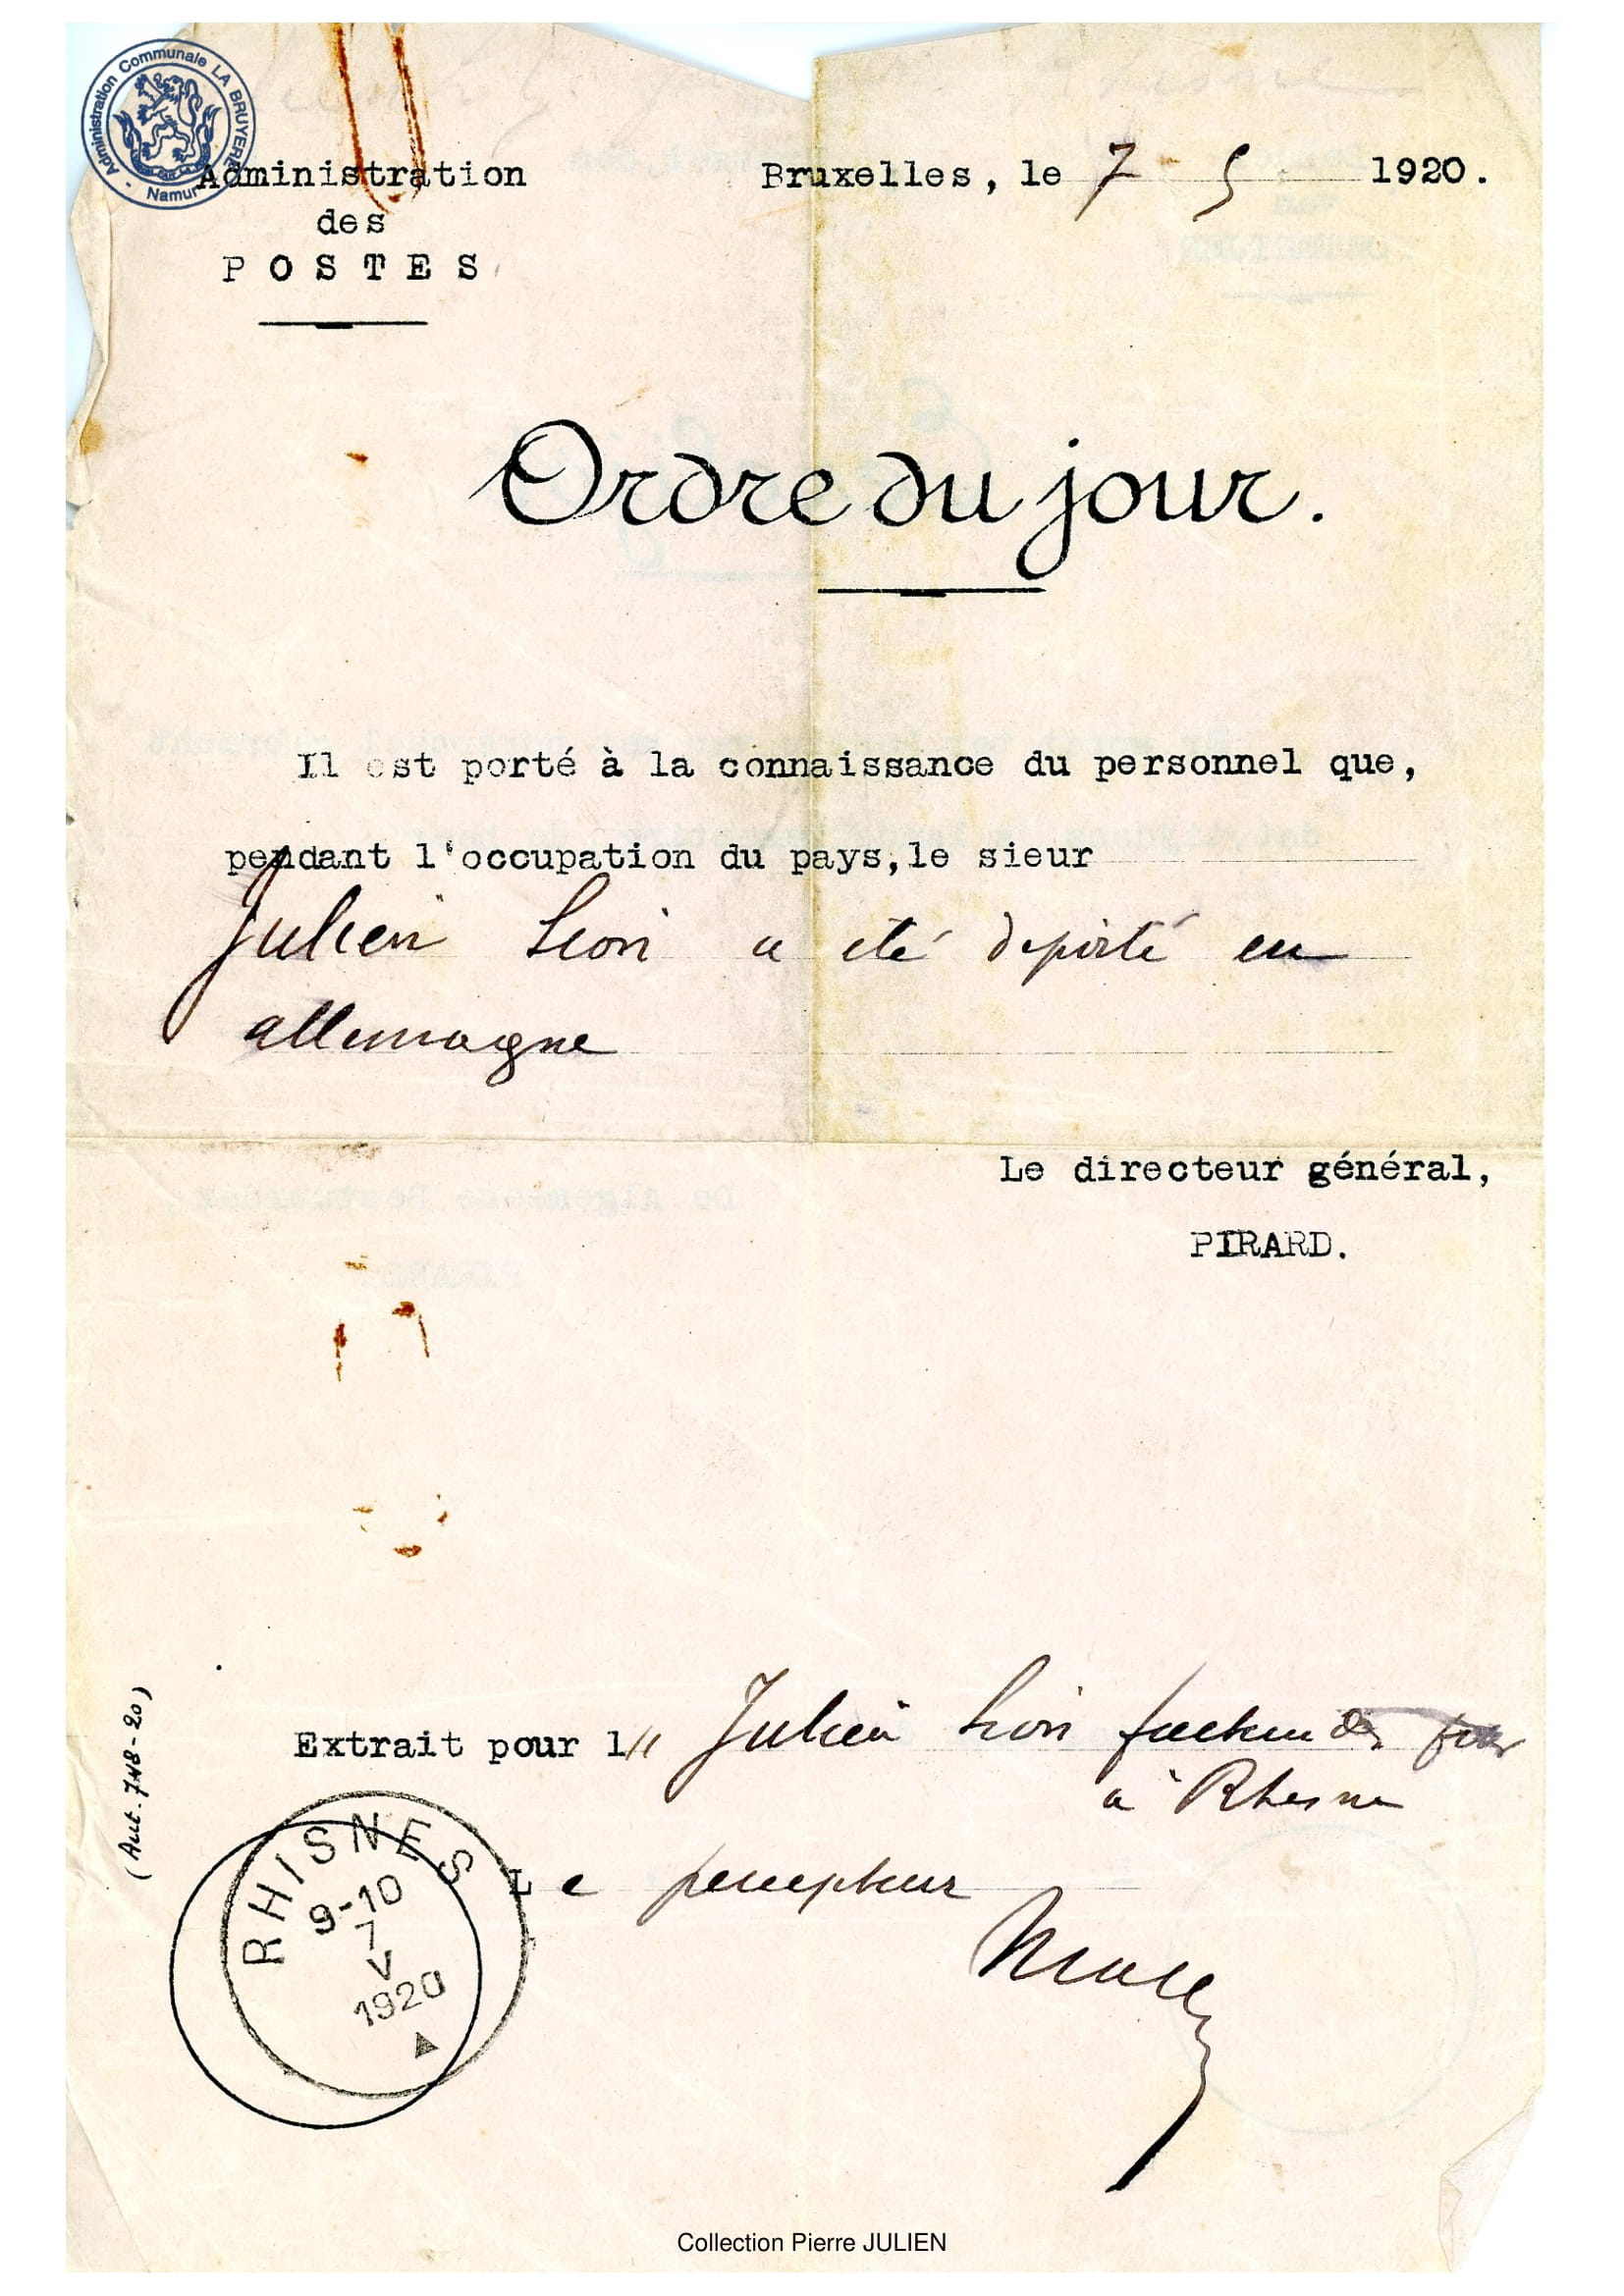 Administration Communale LA BRUYERE
- Namur -
Administration
des
POSTES
Bruxelles, le 7 - 5 1920.
Ordre du jour.
Il est porté à la connaissance du personnel que,
pendant l'occupation du pays, le sieur
Julien Léon a été déporté en
allemagne
Le directeur général,
PIRARD.
Extrait pour l Julien Léon facteur des
à Rhisne
Le percepteur
(Aut. 748-20)
RHISNES
9-10
7
V
1920
Collection Pierre JULIEN